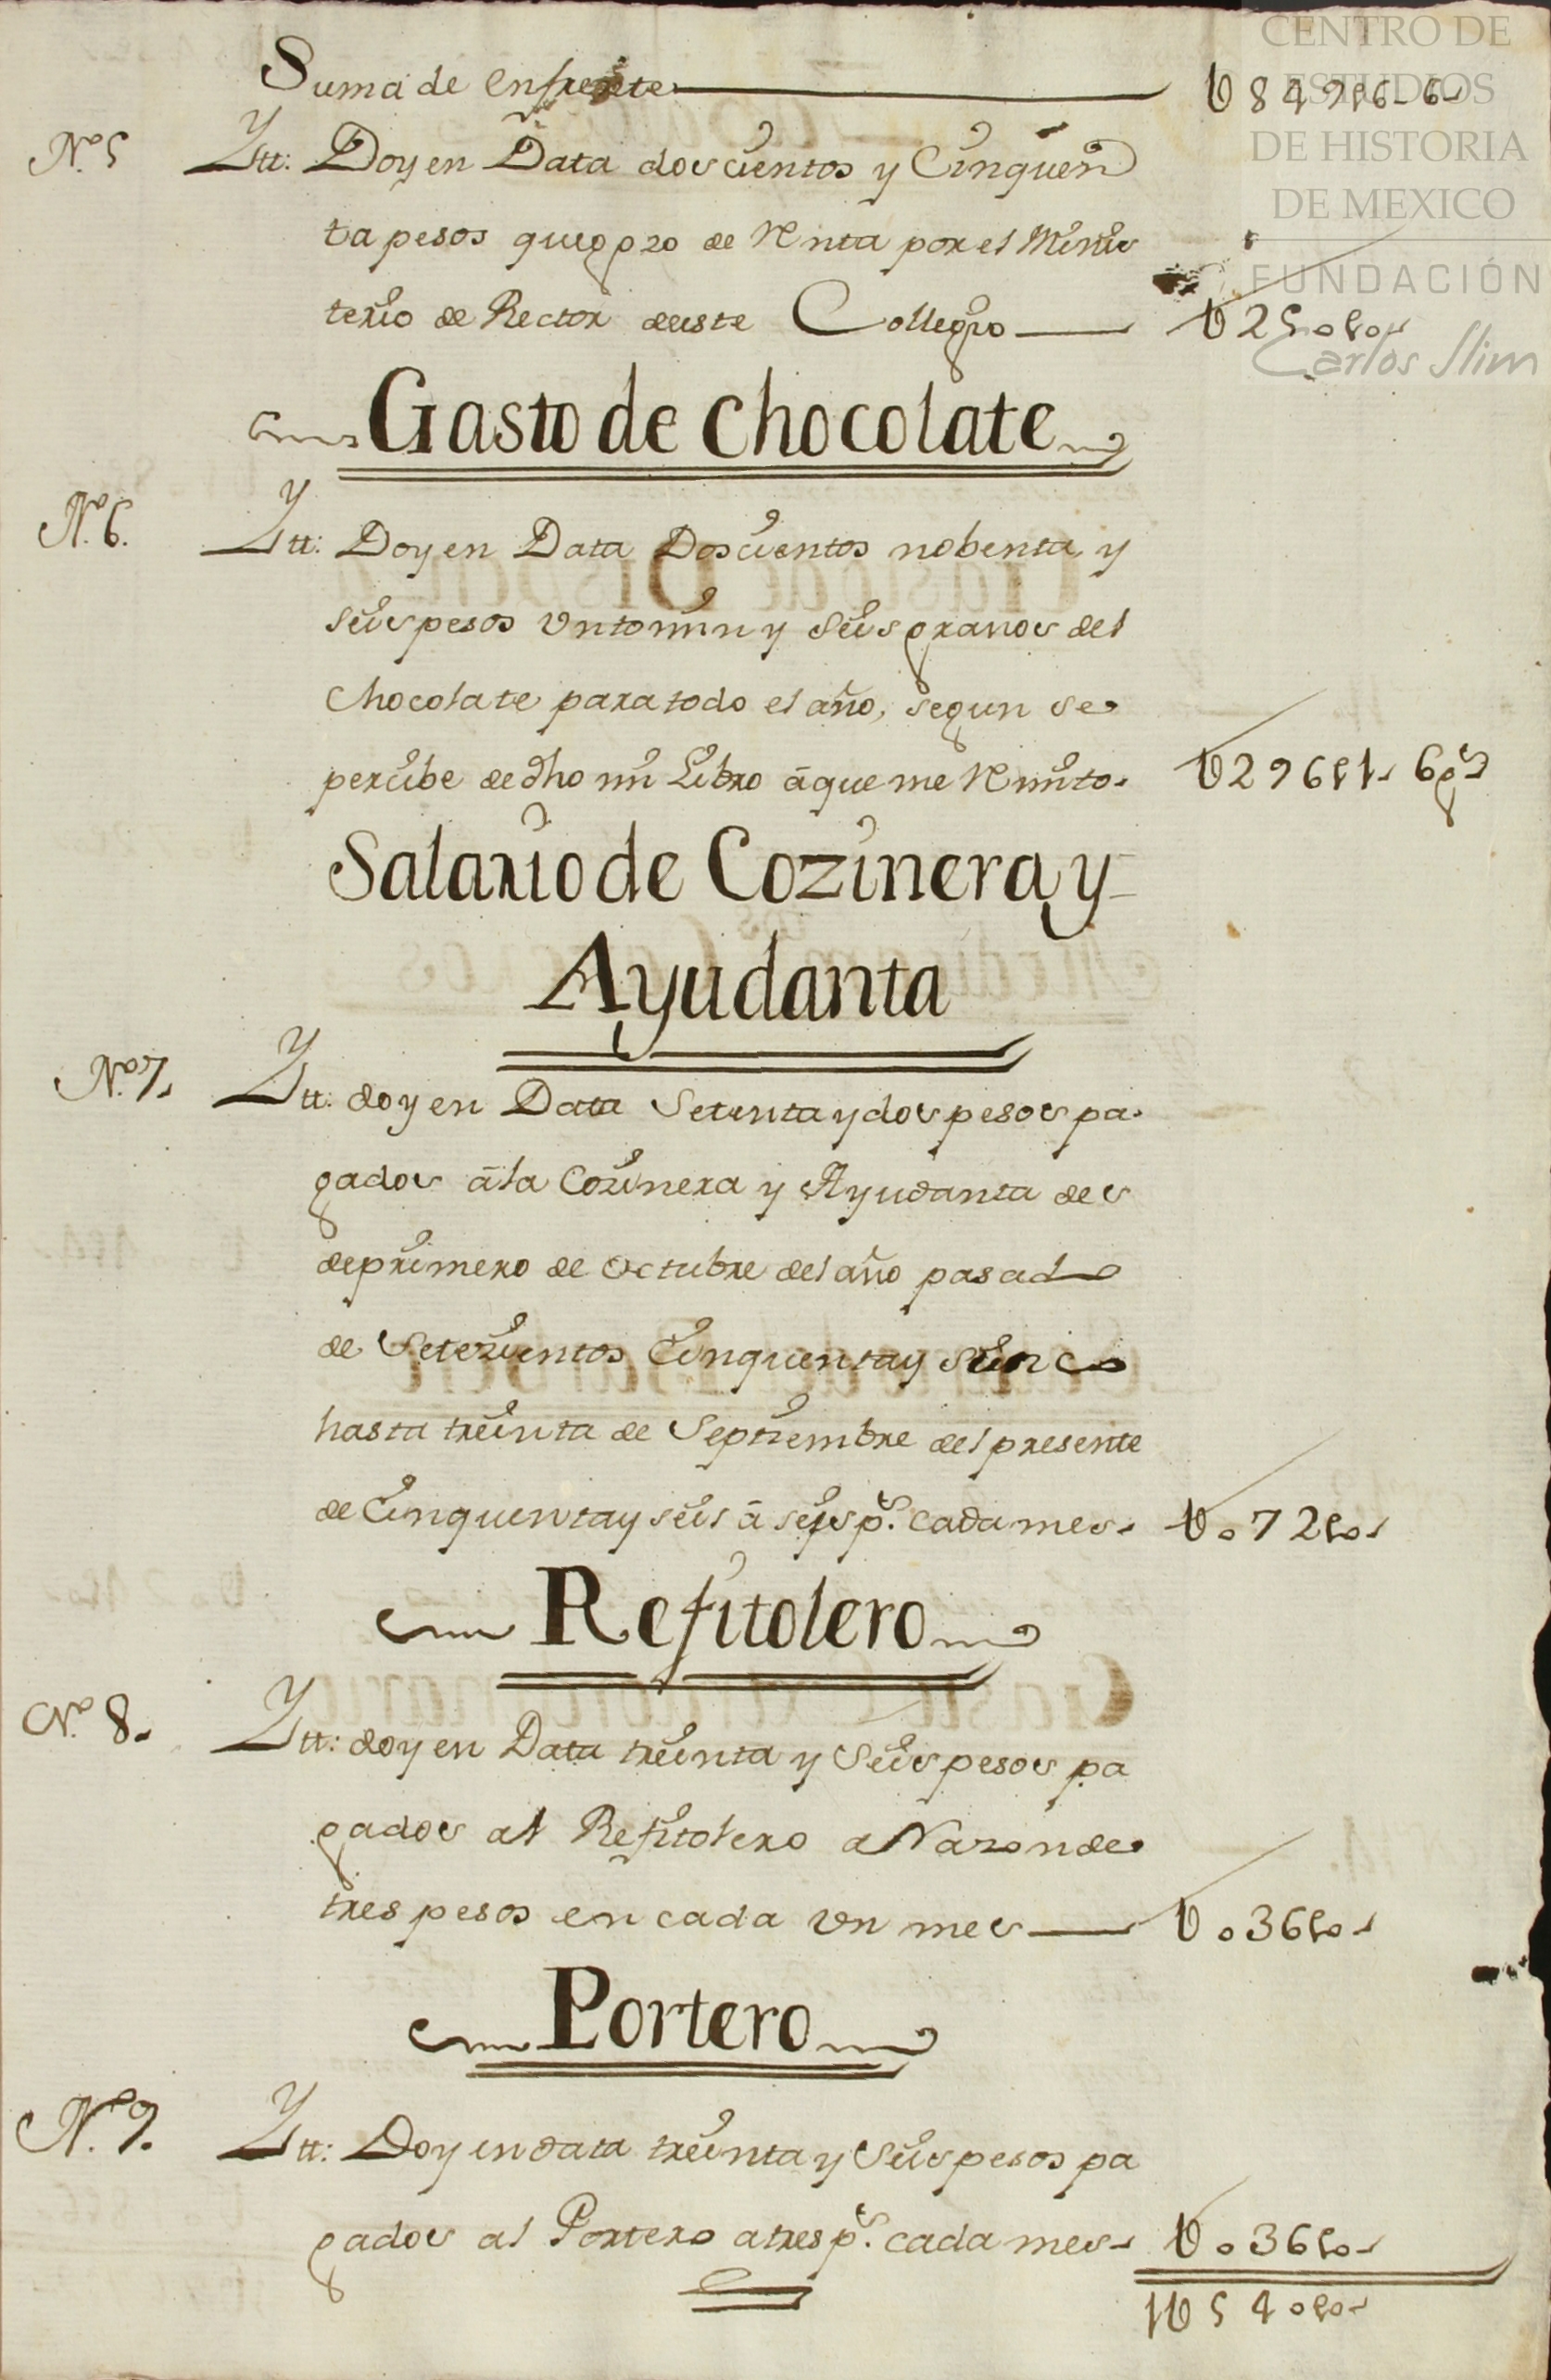 Suma de enfrente U849p6-6-
Nº 5 Ytt: Doy en Data doscientos y Cinquen
ta pesos que gozo de Renta por el Minis
terio de Rector deeste Collegio U250po,,
Gasto de chocolate
Nº 6. Ytt: Doy en Data Doscientos nobenta y
seis pesos Un tomin y seis granos del
chocolate para todo el año, segun se
percibe de dho mi Libro â que me Remito. U296p1,, 6gs
Salario de Cozinera y
Ayudanta
Nº 7. Ytt: doy en Data Setenta y dos pesos pa-
gados â la Cozinera y Ayudanta des
de primero de Octubre del año pasado
de Setezientos Cinquenta y sinco
hasta treinta de Septiembre del presente
de Cinquenta y seis â seis ps. cada mes. U.72po,,
Refitolero
Nº 8. Ytt: doy en Data treinta y Seis pesos pa
gados al Refitolero a Razon de
tres pesos en cada Un mes U.36po,,
Portero
Nº 9. Ytt: Doy en data treinta y Seis pesos pa
gados al Portero a tres ps. cada mes. U.36po,,
1U540po,,
CENTRO DE
ESTUDIOS
DE HISTORIA
DE MEXICO
FUNDACIÓN
Carlos Slim